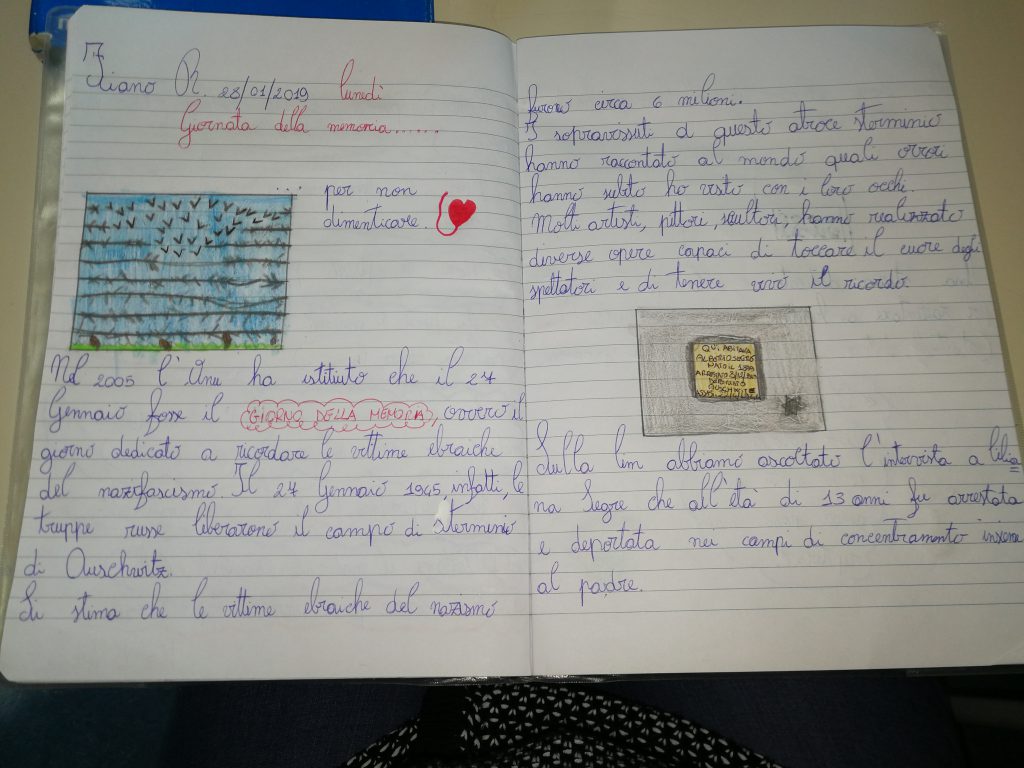 17
Fiano R. 28/01/2019 lunedì
Giornata della memoria......
... per non
dimenticare.
Nel 2005 l'Onu ha istituito che il 27
Gennaio fosse il GIORNO DELLA MEMORIA, ovvero il
giorno dedicato a ricordare le vittime ebraiche
del nazifascismo. Il 27 Gennaio 1945, infatti, le
truppe russe liberarono il campo di sterminio
di Auschwitz.
Si stima che le vittime ebraiche del nazismo
furono circa 6 milioni.
I sopravissuti a questo atroce sterminio
hanno raccontato al mondo quali orrori
hanno subito ho visto con i loro occhi.
Molti artisti, pittori, scultori, hanno realizzato
diverse opere capaci di toccare il cuore degli
spettatori e di tenere vivo il ricordo.
QUI ABITAVA
ALBERTO SEGRE
NATO IL 1899
ARRESTATO
DEPORTATO
AUSCHWITZ
Sulla lim abbiamo ascoltato l'intervista a Lilia
na Segre che all'età di 13 anni fu arrestata
e deportata nei campi di concentramento insieme
al padre.